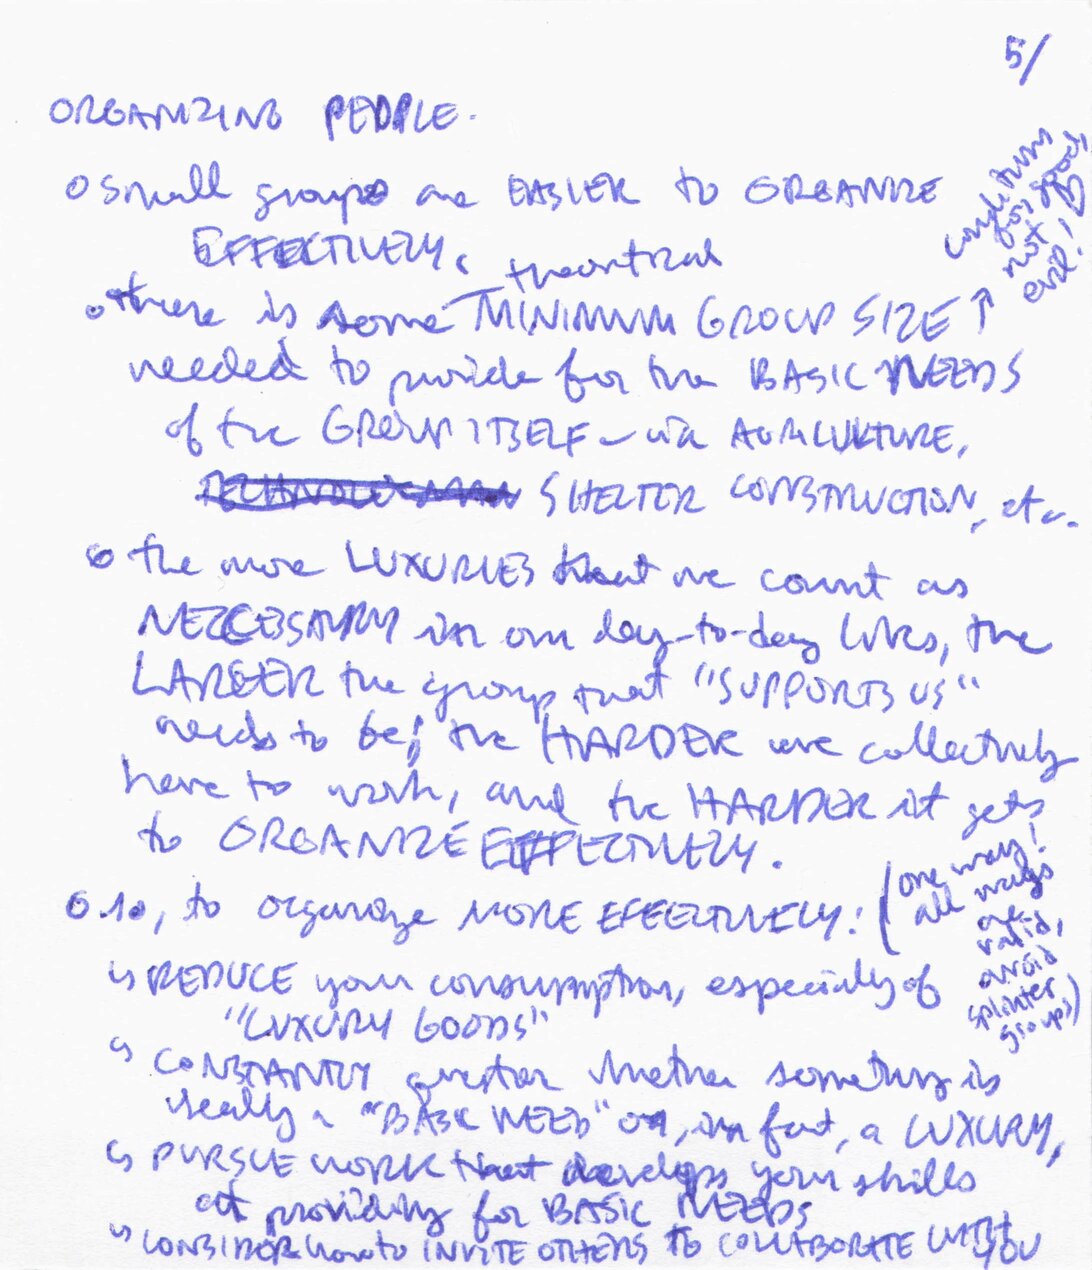 5/
ORGANIZING PEOPLE.
o small groups are EASIER to ORGANIZE
EFFECTIVELY.
theoretical
o there is some MINIMUM GROUP SIZE ↑
conditions
for good,
not
evil!
needed to provide for the BASIC NEEDS
of the GROUP ITSELF – via AGRICULTURE,
SHELTER CONSTRUCTION, etc.
o the more LUXURIES that we count as
NECESSARY in our day-to-day lives, the
LARGER the group that "SUPPORTS US"
needs to be; the HARDER we collectively
have to work, and the HARDER it gets
to ORGANIZE EFFECTIVELY.
o so, to organize MORE EFFECTIVELY:
(one way!
all ways
are
valid,
avoid
splinter
groups)
↳ REDUCE your consumption, especially of
"LUXURY GOODS"
↳ CONSTANTLY question whether something is
really a "BASIC NEED" or, in fact, a LUXURY,
↳ PURSUE WORK that develops your skills
at providing for BASIC NEEDS
↳ CONSIDER how to INVITE OTHERS TO COLLABORATE WITH
YOU